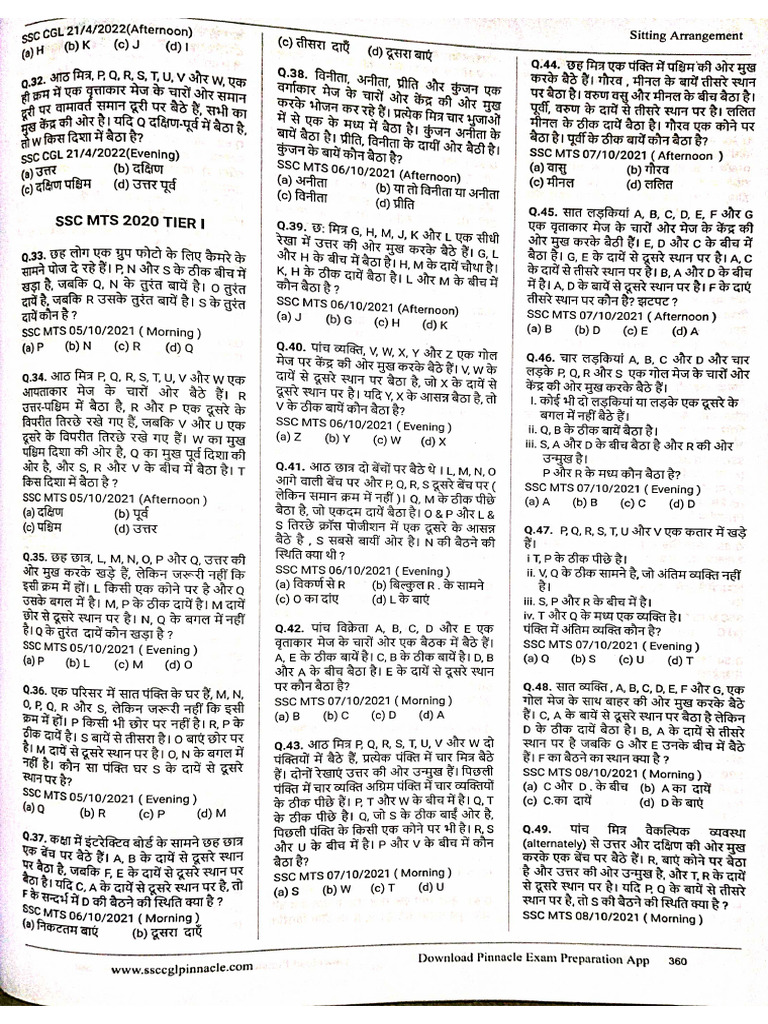 Sitting Arrangement
SSC CGL 21/4/2022(Afternoon)
(a) H (b) K (c) J (d) I
Q.32. आठ मित्र, P, Q, R, S, T, U, V और W, एक
ही क्रम में एक वृत्ताकार मेज के चारों ओर समान
दूरी पर वामावर्त समान दूरी पर बैठे हैं, सभी का
मुख केंद्र की ओर है। यदि Q दक्षिण-पूर्व में बैठा है,
तो W किस दिशा में बैठा है?
SSC CGL 21/4/2022(Evening)
(a) उत्तर (b) दक्षिण
(c) दक्षिण पश्चिम (d) उत्तर पूर्व
SSC MTS 2020 TIER I
Q.33. छह लोग एक ग्रुप फोटो के लिए कैमरे के
सामने पोज दे रहे हैं। P, N और S के ठीक बीच में
खड़ा है, जबकि Q, N के तुरंत बायें है। O तुरंत
दायें है, जबकि R उसके तुरंत बायें है। S के तुरंत
दायें कौन है ?
SSC MTS 05/10/2021 ( Morning )
(a) P (b) N (c) R (d) Q
Q.34. आठ मित्र P, Q, R, S, T, U, V और W एक
आयताकार मेज के चारों ओर बैठे हैं। R
उत्तर-पश्चिम में बैठा है, R और P एक दूसरे के
विपरीत तिरछे रखे गए हैं, जबकि V और U एक
दूसरे के विपरीत तिरछे रखे गए हैं। W का मुख
पश्चिम दिशा की ओर है, Q का मुख पूर्व दिशा की
ओर है, और S, R और V के बीच में बैठा है। T
किस दिशा में बैठा है ?
SSC MTS 05/10/2021 (Afternoon )
(a) दक्षिण (b) पूर्व
(c) पश्चिम (d) उत्तर
Q.35. छह छात्र, L, M, N, O, P और Q, उत्तर की
ओर मुख करके खड़े हैं, लेकिन जरूरी नहीं कि
इसी क्रम में हों। L किसी एक कोने पर है और Q
उसके बगल में है। M, P के ठीक दायें है। M दायें
छोर से दूसरे स्थान पर है। N, Q के बगल में नहीं
है। Q के तुरंत दायें कौन खड़ा है ?
SSC MTS 05/10/2021 ( Evening )
(a) P (b) L (c) M (d) O
Q.36. एक परिसर में सात पंक्ति के घर हैं, M, N,
O, P, Q, R और S, लेकिन जरूरी नहीं कि इसी
क्रम में हों। P किसी भी छोर पर नहीं है। R, P के
ठीक दायें है। S बायें से तीसरा है। O बाएं छोर पर
है। M दायें से दूसरे स्थान पर है। O, N के बगल में
नहीं है। कौन सा पंक्ति घर S के दायें से दूसरे
स्थान पर है?
SSC MTS 05/10/2021 ( Evening )
(a) Q (b) R (c) P (d) M
Q.37. कक्षा में इंटरेक्टिव बोर्ड के सामने छह छात्र
एक बेंच पर बैठे हैं। A, B के दायें से दूसरे स्थान
पर बैठा है, जबकि F, E के दायें से दूसरे स्थान पर
बैठा है। यदि C, A के दायें से दूसरे स्थान पर है, तो
F के सन्दर्भ में D की बैठने की स्थिति क्या है ?
SSC MTS 06/10/2021 ( Morning )
(a) निकटतम बाएं (b) दूसरा दाएँ
(c) तीसरा दाएँ (d) दूसरा बाएं
Q.38. विनीता, अनीता, प्रीति और कुंजन एक
वर्गाकार मेज के चारों ओर केंद्र की ओर मुख
करके भोजन कर रहे हैं। प्रत्येक मित्र चार भुजाओं
में से एक के मध्य में बैठा है। कुंजन अनीता के
बायें बैठा है। प्रीति, विनीता के दायीं ओर बैठी है।
कुंजन के बायें कौन बैठा है?
SSC MTS 06/10/2021 (Afternoon)
(a) अनीता (b) या तो विनीता या अनीता
(c) विनीता (d) प्रीति
Q.39. छ: मित्र G, H, M, J, K और L एक सीधी
रेखा में उत्तर की ओर मुख करके बैठे हैं। G, L
और H के बीच में बैठा है। H, M के दायें चौथा है।
K, H के ठीक दायें बैठा है। L और M के बीच में
कौन बैठा है ?
SSC MTS 06/10/2021 (Afternoon)
(a) J (b) G (c) H (d) K
Q.40. पांच व्यक्ति, V, W, X, Y और Z एक गोल
मेज पर केंद्र की ओर मुख करके बैठे हैं। V, W के
दायें से दूसरे स्थान पर बैठा है, जो X के दायें से
दूसरे स्थान पर है। यदि Y, X के आसन्न बैठा है, तो
V के ठीक बायें कौन बैठा है?
SSC MTS 06/10/2021 ( Evening )
(a) Z (b) Y (c) W (d) X
Q.41. आठ छात्र दो बेंचों पर बैठे थे । L, M, N, O
आगे वाली बेंच पर और P, Q, R, S दूसरे बेंच पर (
लेकिन समान क्रम में नहीं )। Q, M के ठीक पीछे
बैठा है, जो एकदम दायें बैठा है। O & P और L &
S तिरछे क्रॉस पोजीशन में एक दूसरे के आसन्न
बैठे है , S सबसे बायीं ओर है। N की बैठने की
स्थिति क्या थी ?
SSC MTS 06/10/2021 ( Evening )
(a) विकर्ण से R (b) बिल्कुल R . के सामने
(c) O का दांए (d) L के बाएं
Q.42. पांच विक्रेता A, B, C, D और E एक
वृताकार मेज के चारों ओर एक बैठक में बैठे हैं।
A, E के ठीक बायें है। C, B के ठीक बायें है। D, B
और A के बीच बैठा है। E के दायें से दूसरे स्थान
पर कौन बैठा है?
SSC MTS 07/10/2021 ( Morning )
(a) B (b) C (c) D (d) A
Q.43. आठ मित्र P, Q, R, S, T, U, V और W दो
पंक्तियों में बैठे हैं, प्रत्येक पंक्ति में चार मित्र बैठे
हैं। दोनों रेखाएं उत्तर की ओर उन्मुख हैं। पिछली
पंक्ति में चार व्यक्ति अग्रिम पंक्ति में चार व्यक्तियों
के ठीक पीछे हैं। P, T और W के बीच में है। Q, T
के ठीक पीछे है। Q, जो S के ठीक बाईं ओर है,
पिछली पंक्ति के किसी एक कोने पर भी है। R, S
और U के बीच में है। P और V के बीच में कौन
बैठा है?
SSC MTS 07/10/2021 ( Morning )
(a) S (b) W (c) T (d) U
Q.44. छह मित्र एक पंक्ति में पश्चिम की ओर मुख
करके बैठे हैं। गौरव , मीनल के बायें तीसरे स्थान
पर बैठा है। वरुण वसु और मीनल के बीच बैठा है।
पूर्वी, वरुण के दायें से तीसरे स्थान पर है। ललित
मीनल के ठीक दायें बैठा है। गौरव एक कोने पर
बैठा है। पूर्वी के ठीक बायें कौन बैठा है?
SSC MTS 07/10/2021 ( Afternoon )
(a) वासु (b) गौरव
(c) मीनल (d) ललित
Q.45. सात लड़कियां A, B, C, D, E, F और G
एक वृताकार मेज के चारों ओर मेज के केंद्र की
ओर मुख करके बैठी हैं। E, D और C के बीच में
बैठा है। G, E के दायें से दूसरे स्थान पर है। A, C
के दायें से तीसरे स्थान पर है। B, A और D के बीच
में है। A, D के बायें से दूसरे स्थान पर है। F के दाएं
तीसरे स्थान पर कौन है? झटपट ?
SSC MTS 07/10/2021 ( Afternoon )
(a) B (b) D (c) E (d) A
Q.46. चार लड़कियां A, B, C और D और चार
लड़के P, Q, R और S एक गोल मेज के चारों ओर
केंद्र की ओर मुख करके बैठे हैं।
I. कोई भी दो लड़कियां या लड़के एक दूसरे के
बगल में नहीं बैठे हैं।
ii. Q, B के ठीक बायें बैठा है।
iii. S, A और D के बीच बैठा है और R की ओर
उन्मुख है।
P और R के मध्य कौन बैठा है?
SSC MTS 07/10/2021 ( Evening )
(a) A (b) B (c) C (d) D
Q.47. P, Q, R, S, T, U और V एक कतार में खड़े
हैं।
i T, P के ठीक पीछे है।
ii. V, Q के ठीक सामने है, जो अंतिम व्यक्ति नहीं
है।
iii. S, P और R के बीच में है।
iv. T और Q के मध्य एक व्यक्ति है।
पंक्ति में अंतिम व्यक्ति कौन है?
SSC MTS 07/10/2021 ( Evening )
(a) Q (b) S (c) U (d) T
Q.48. सात व्यक्ति , A, B, C, D, E, F और G, एक
गोल मेज के साथ बाहर की ओर मुख करके बैठे
हैं। C, A के बायें से दूसरे स्थान पर बैठा है लेकिन
D के ठीक दायें बैठा है। B, A के दायें से तीसरे
स्थान पर है जबकि G और E उनके बीच में बैठे
हैं। F का बैठने का स्थान क्या है ?
SSC MTS 08/10/2021 ( Morning )
(a) C और D . के बीच (b) A का दायें
(c) C.का दायें (d) D के बाएं
Q.49. पांच मित्र वैकल्पिक व्यवस्था
(alternately) से उत्तर और दक्षिण की ओर मुख
करके एक बेंच पर बैठे हैं। R, बाएं कोने पर बैठा
है और उत्तर की ओर उन्मुख है, और T, R के दायें
से दूसरे स्थान पर है। यदि P, Q के बायें से तीसरे
स्थान पर है, तो S की बैठने की स्थिति क्या है ?
SSC MTS 08/10/2021 ( Morning )
www.ssccglpinnacle.com
Download Pinnacle Exam Preparation App 360